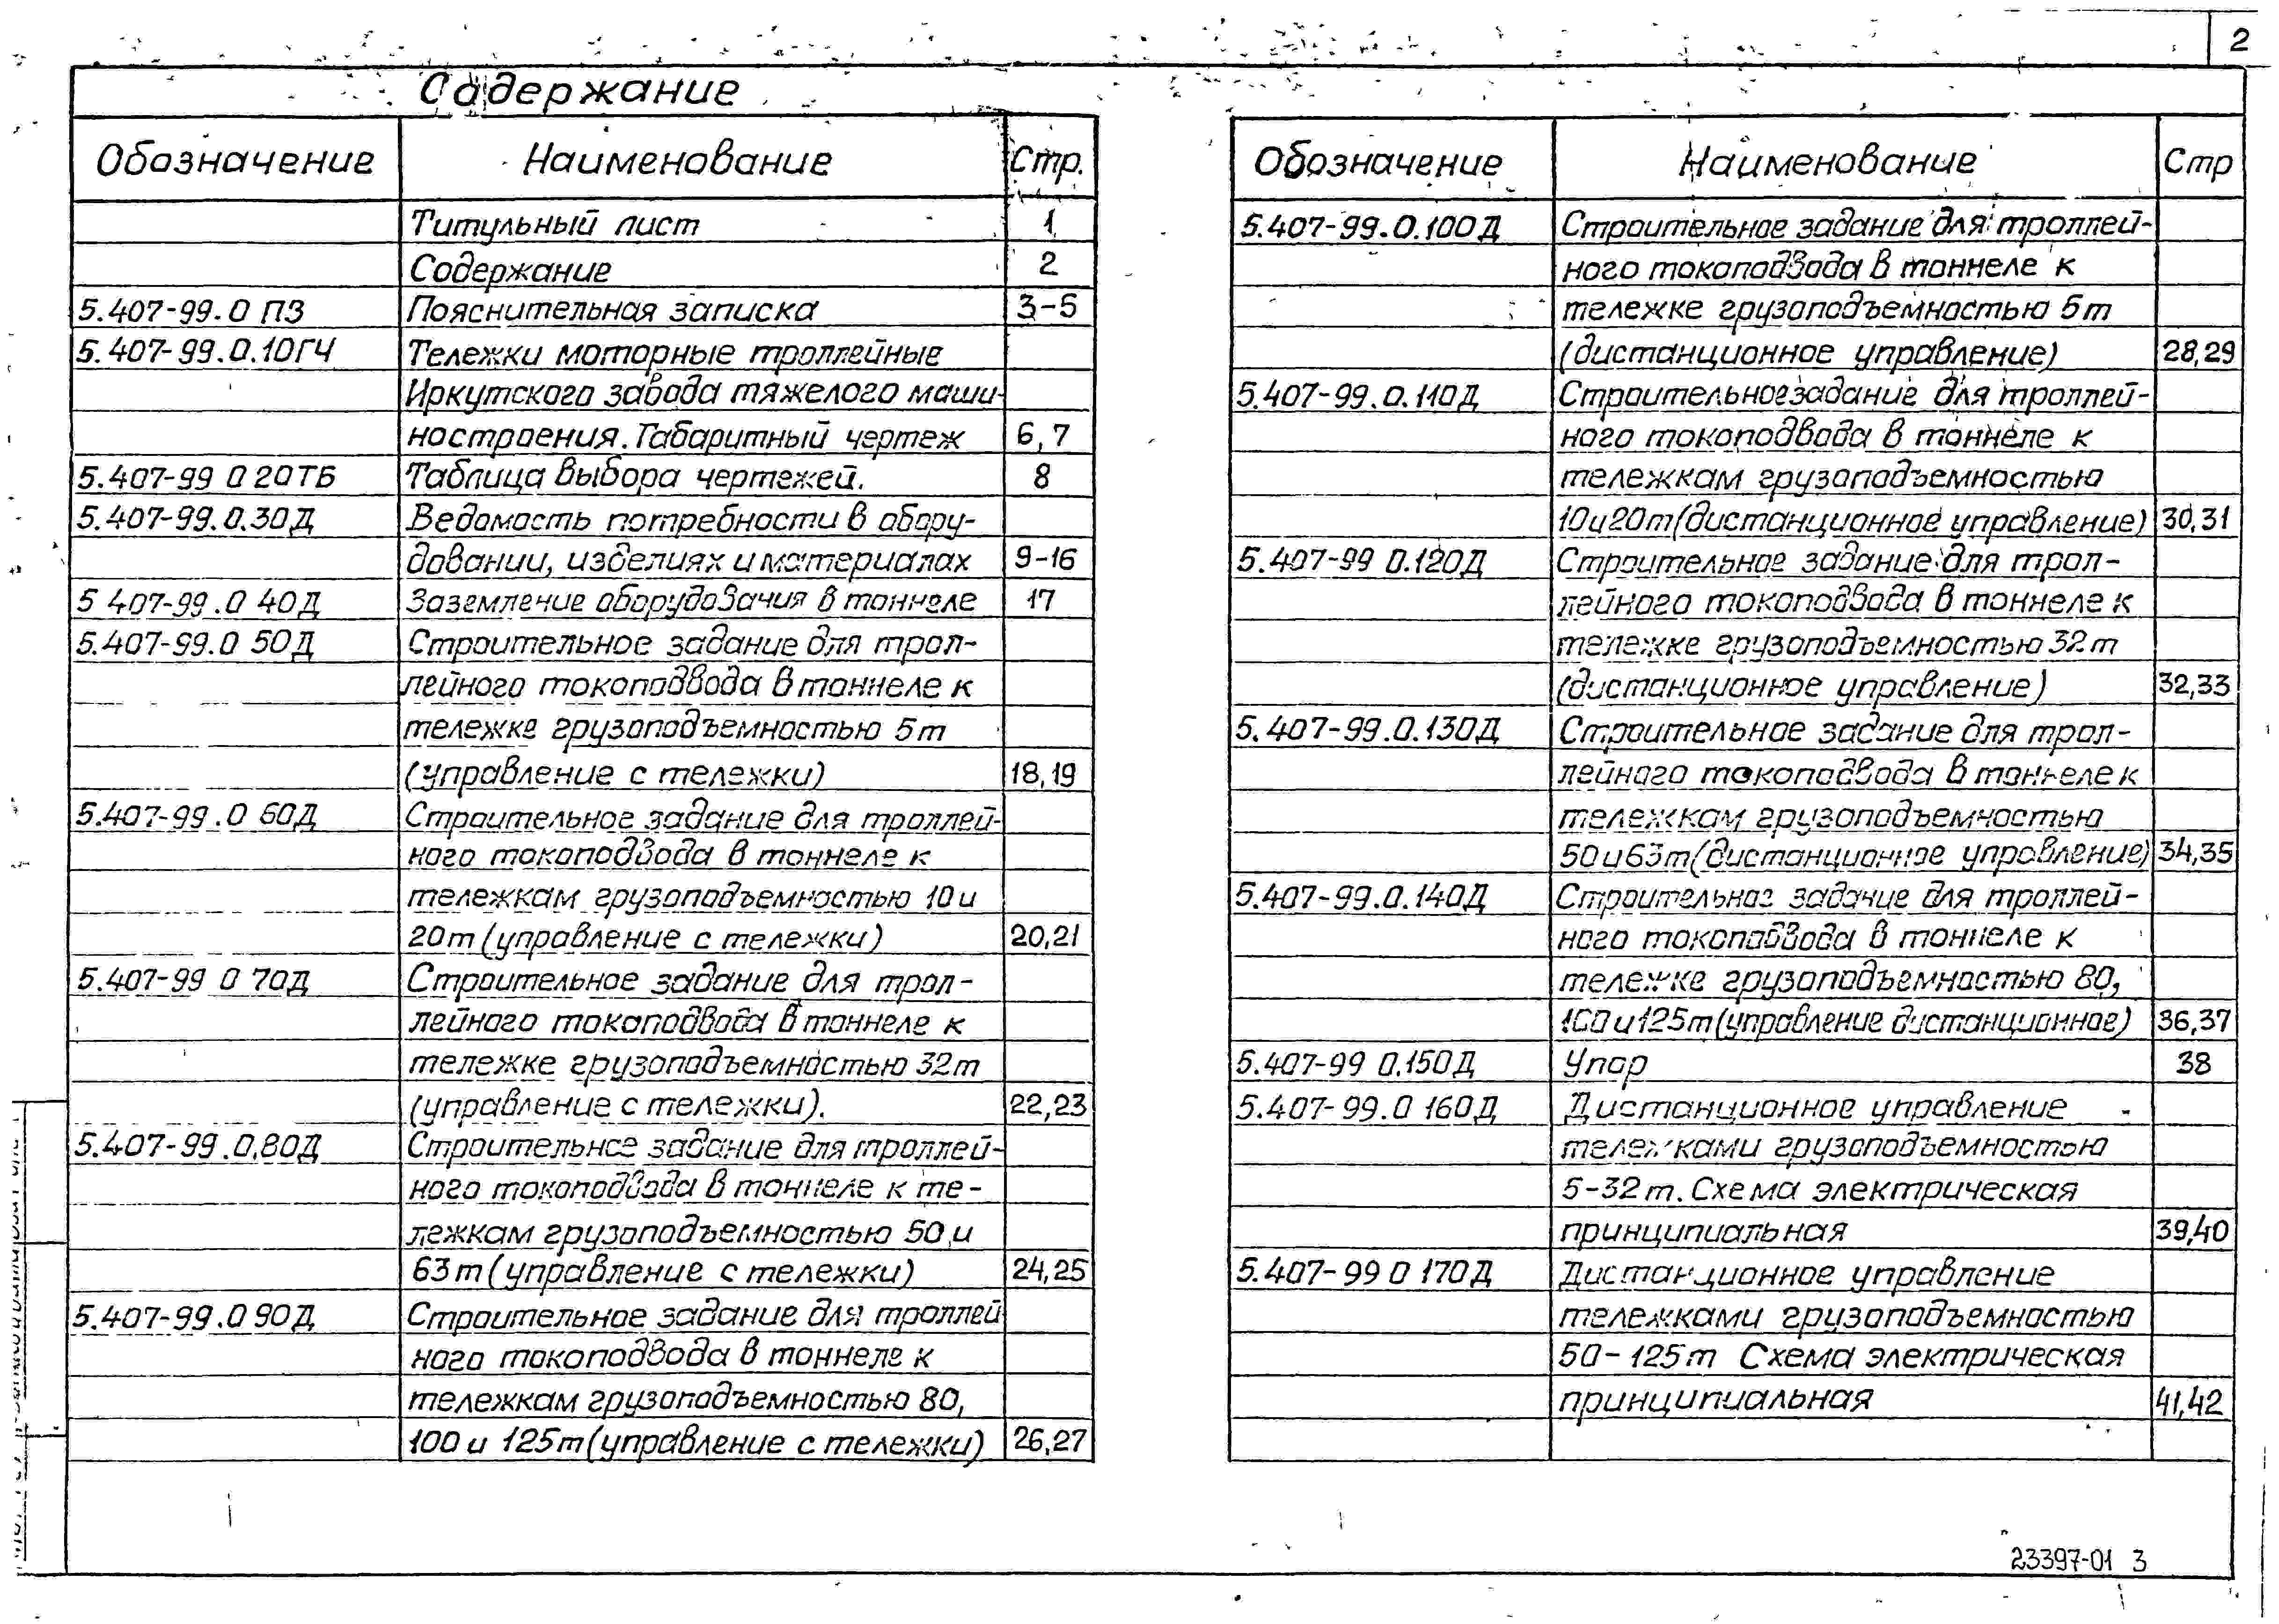 2
Содержание
Обозначение Наименование Стр.
Титульный лист 1
Содержание 2
5.407-99.0 ПЗ Пояснительная записка 3-5
5.407-99.0.10ГЧ Тележки моторные троллейные
Иркутского завода тяжелого маши-
ностроения. Габаритный чертеж 6,7
5.407-99 0 20ТБ Таблица выбора чертежей. 8
5.407-99.0.30Д Ведомость потребности в обору-
довании, изделиях и материалах 9-16
5 407-99.0 40Д Заземление оборудования в тоннеле 17
5.407-99.0 50Д Строительное задание для трол-
лейного токоподвода в тоннеле к
тележке грузоподъемностью 5т
(управление с тележки) 18,19
5.407-99.0 60Д Строительное задание для троллей-
ного токоподвода в тоннеле к
тележкам грузоподъемностью 10 и
20т (управление с тележки) 20,21
5.407-99 0 70Д Строительное задание для трол-
лейного токоподвода в тоннеле к
тележке грузоподъемностью 32т
(управление с тележки). 22,23
5.407-99.0.80Д Строительное задание для троллей-
ного токоподвода в тоннеле к те-
лежкам грузоподъемностью 50 и
63т (управление с тележки) 24,25
5.407-99.0 90Д Строительное задание для троллей
ного токоподвода в тоннеле к
тележкам грузоподъемностью 80,
100 и 125т (управление с тележки) 26,27
Обозначение Наименование Стр
5.407-99.0.100Д Строительное задание для троллей-
ного токоподвода в тоннеле к
тележке грузоподъемностью 5т
(дистанционное управление) 28,29
5.407-99.0.110Д Строительное задание для троллей-
ного токоподвода в тоннеле к
тележкам грузоподъемностью
10 и 20т (дистанционное управление) 30,31
5.407-99 0.120Д Строительное задание для трол-
лейного токоподвода в тоннеле к
тележке грузоподъемностью 32т
(дистанционное управление) 32,33
5.407-99.0.130Д Строительное задание для трол-
лейного токоподвода в тоннеле к
тележкам грузоподъемностью
50 и 63т (дистанционное управление) 34,35
5.407-99.0.140Д Строительное задание для троллей-
ного токоподвода в тоннеле к
тележке грузоподъемностью 80,
100 и 125т (управление дистанционное) 36,37
5.407-99 0.150Д Упор 38
5.407-99.0 160Д Дистанционное управление
тележками грузоподъемностью
5-32т. Схема электрическая
принципиальная 39,40
5.407-99 0 170Д Дистанционное управление
тележками грузоподъемностью
50-125т Схема электрическая
принципиальная 41,42
23397-01 3